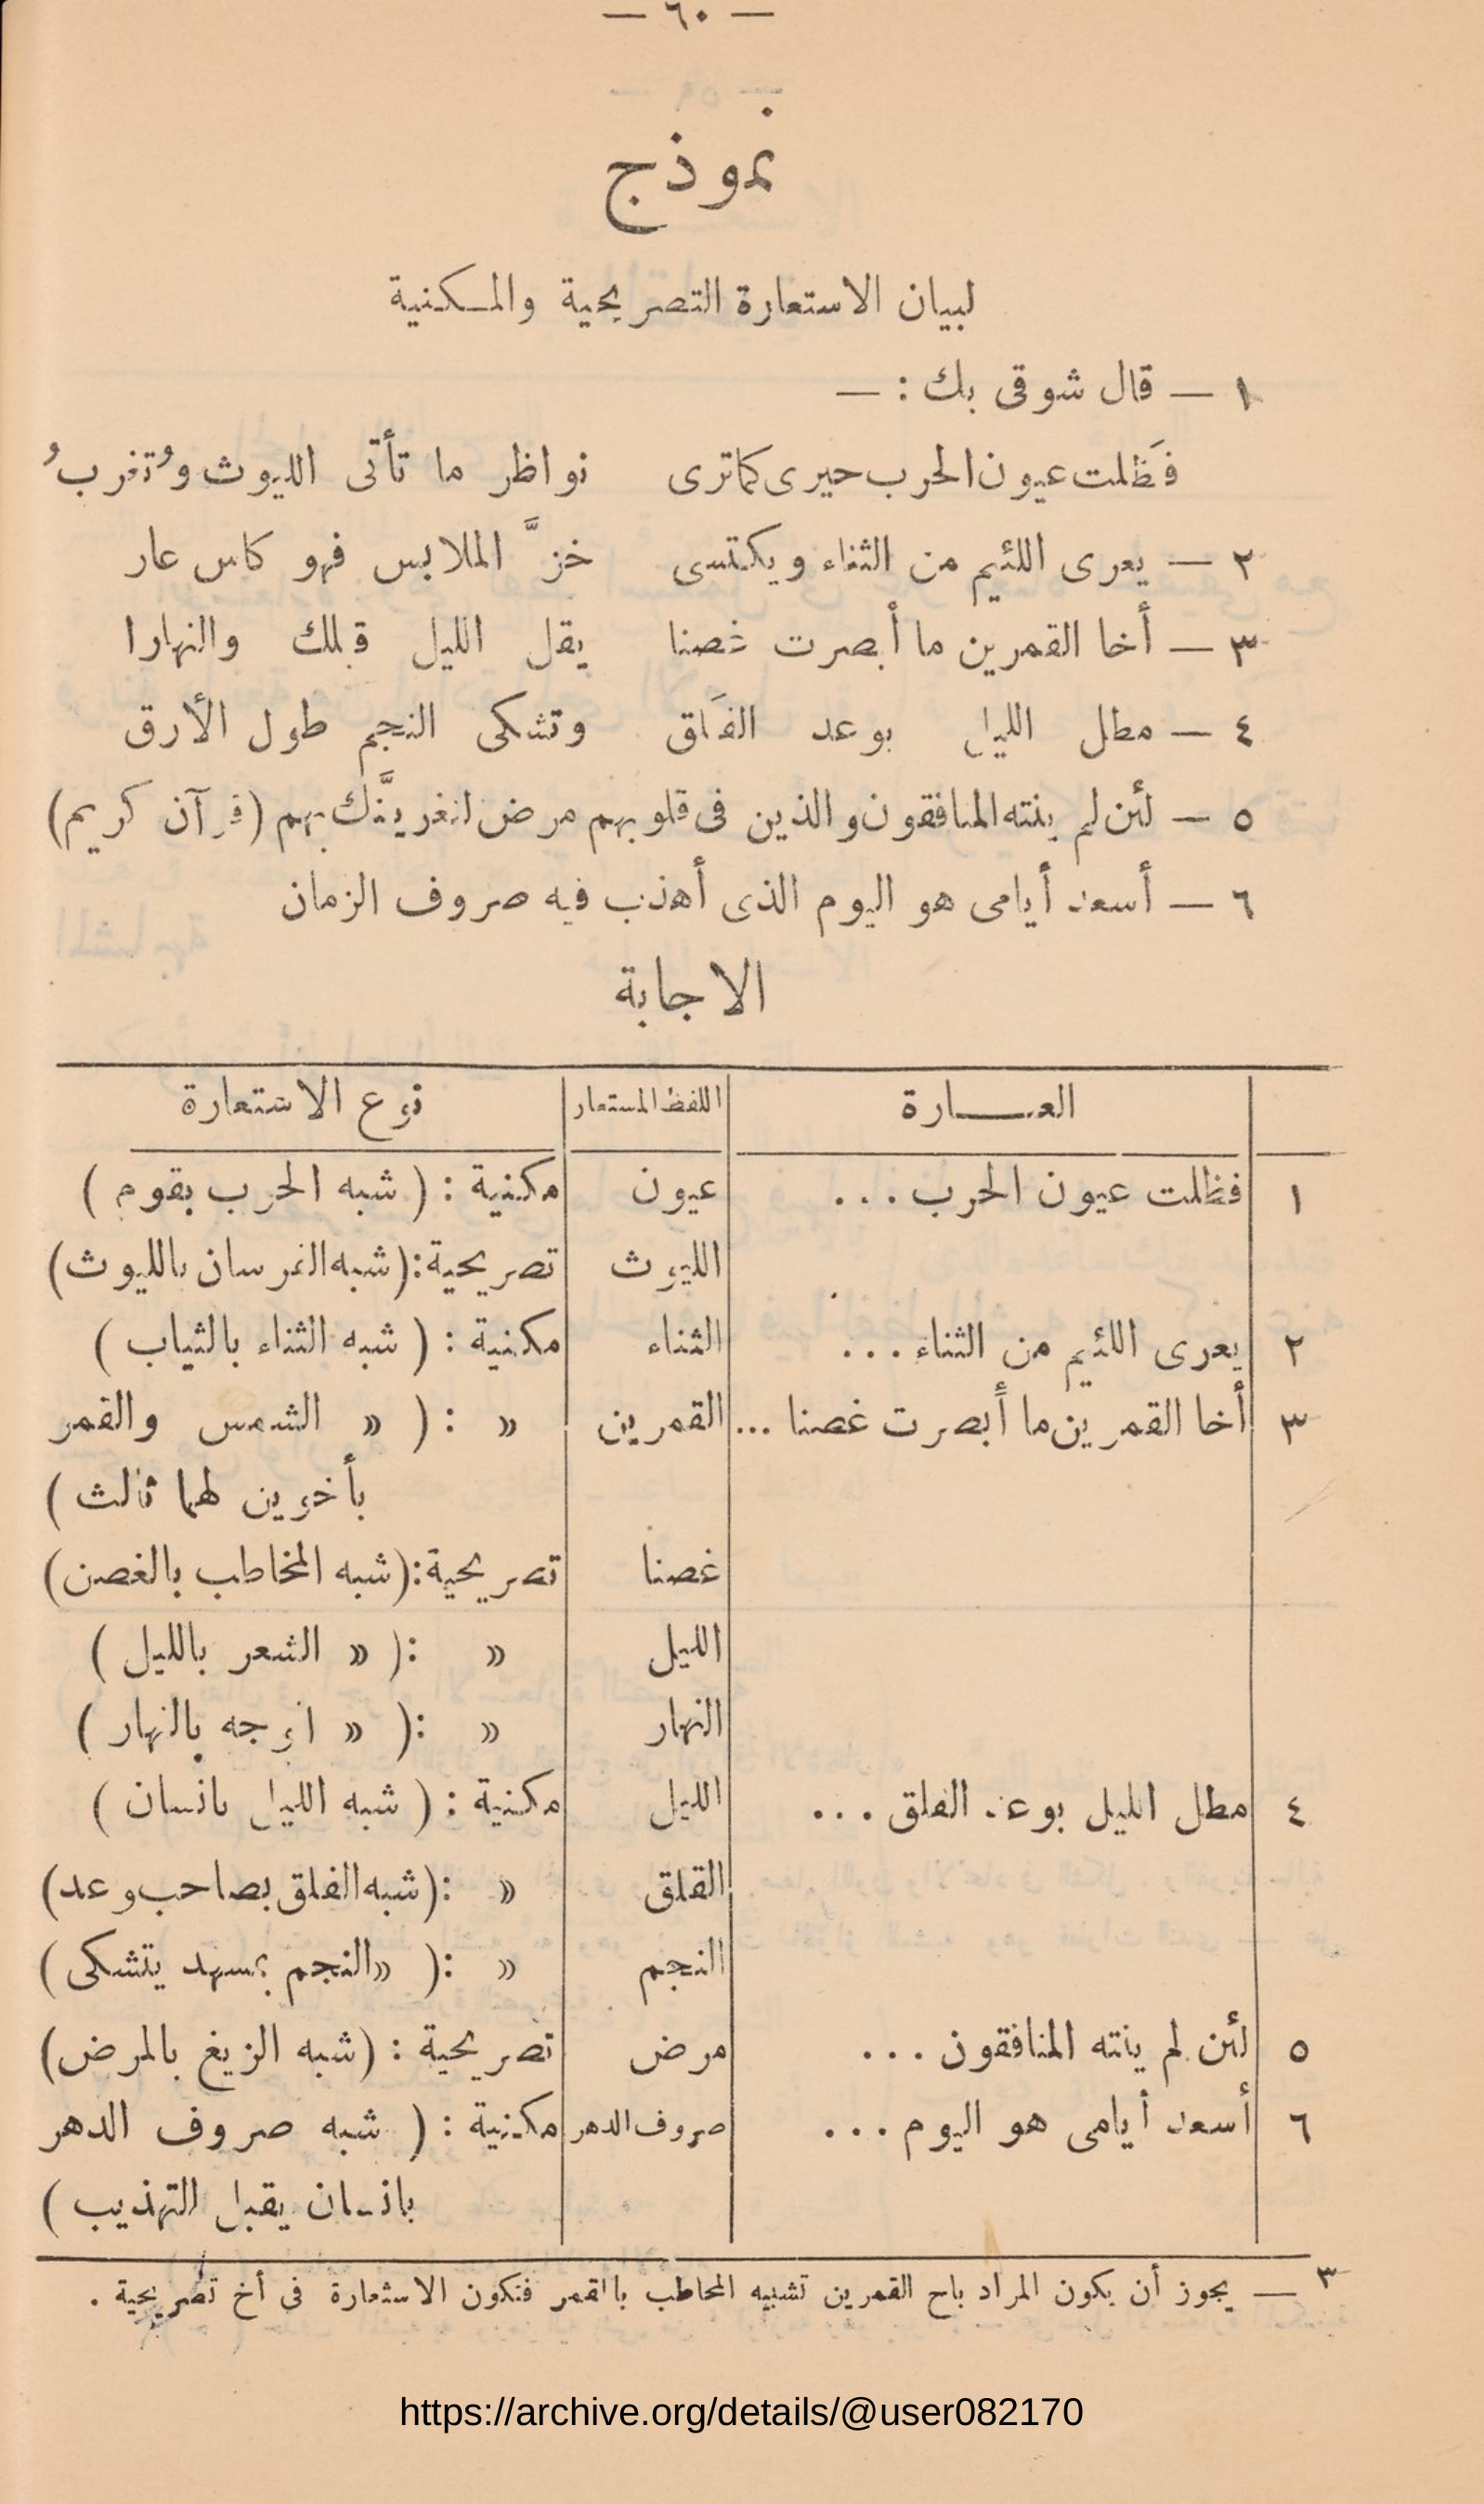 — ٦٠ —
نموذج
لبيان الاستعارة التصريحية والمكنية
١ — قال شوقى بك : —
فَظلت عيون الحرب حيرى كما ترى نواظر ما تأتى الليوث وُتغربُ
٢ — يعرى اللئيم من الثناء ويكتسى خزَّ الملابس فهو كاس عار
٣ — أخا القمرين ما أبصرت غصنا يقل الليل قبلك والنهارا
٤ — مطل الليل بوعد الفَلق وتشكى النجم طول الأرق
٥ — لئن لم ينته المنافقون والذين فى قلوبهم مرض لنغرينَّك بهم (قرآن كريم)
٦ — أسعد أيامى هو اليوم الذى أهذب فيه صروف الزمان
الاجابة
العبارة اللفظ المستعار نوع الاستعارة
١ فظلت عيون الحرب ... عيون مكنية : ( شبه الحرب بقوم )
الليوث تصريحية : (شبه الفرسان بالليوث)
٢ يعرى اللئيم من الثناء ... الثناء مكنية : ( شبه الثناء بالثياب )
٣ أخا القمرين ما أبصرت غصنا ... القمرين « : ( « الشمس والقمر
بأخوين لهما ثالث )
غصنا تصريحية : (شبه المخاطب بالغصن)
الليل « : ( « الشعر بالليل )
النهار « : ( « الوجه بالنهار )
٤ مطل الليل بوعد الفلق ... الليل مكنية : ( شبه الليل بانسان )
القلق « : (شبه الفلق بصاحب وعد)
النجم « : ( « النجم بمسهد يتشكى )
٥ لئن لم ينته المنافقون ... مرض تصريحية : (شبه الزيغ بالمرض)
٦ أسعد أيامى هو اليوم ... صروف الدهر مكنية : ( شبه صروف الدهر
بانسان يقبل التهذيب )
٣ — يجوز أن يكون المراد باخ القمرين تشبيه المخاطب بالقمر فتكون الاستعارة فى أخ تصريحية .
https://archive.org/details/@user082170